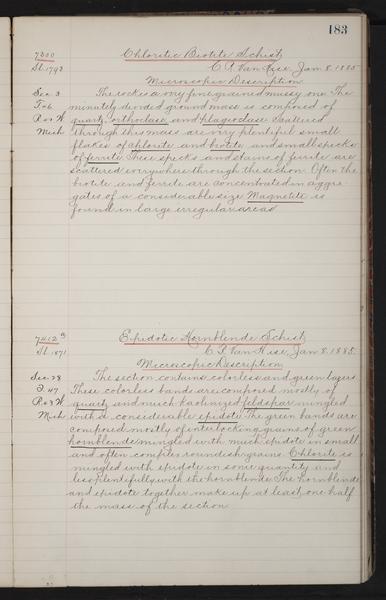 183
7300 Chloritic Biotite Schist
Sl. 1793 C. R. Van Hise, Jan. 8. 1885
Microscopic Description
Sec. 3 The rock is a very fine grained mussy one. The
T. 46 minutely divided ground mass is composed of
R. 41 W. quartz, orthoclase, and plagioclase. Scattered
Mich through this mass are very plentiful small
flakes of chlorite and biotite and small specks
of ferrite. These specks and stains of ferrite are
scattered everywhere through the section. Often the
biotite and ferrite are concentrated in aggre
gates of a considerable size. Magnetite is
found in large irregular areas
7412 Epidotic Hornblende Schist
Sl. 1871 C. R. Van Hise, Jan. 8. 1885.
Microscopic Description
Sec. 28 The section contains colorless and green layers
T. 47 These colorless bands are composed mostly of
quartz and much kaolinized feldspar mingled
Mich with a considerable epidote. The green bands are
composed mostly of interlocking grains of green
hornblende mingled with much epidote in small
and often complex roundish grains. Chlorite is
mingled with epidote in some quantity and
less plentifully with the hornblende. The hornblende
and epidote together make up at least one half
the mass of the section